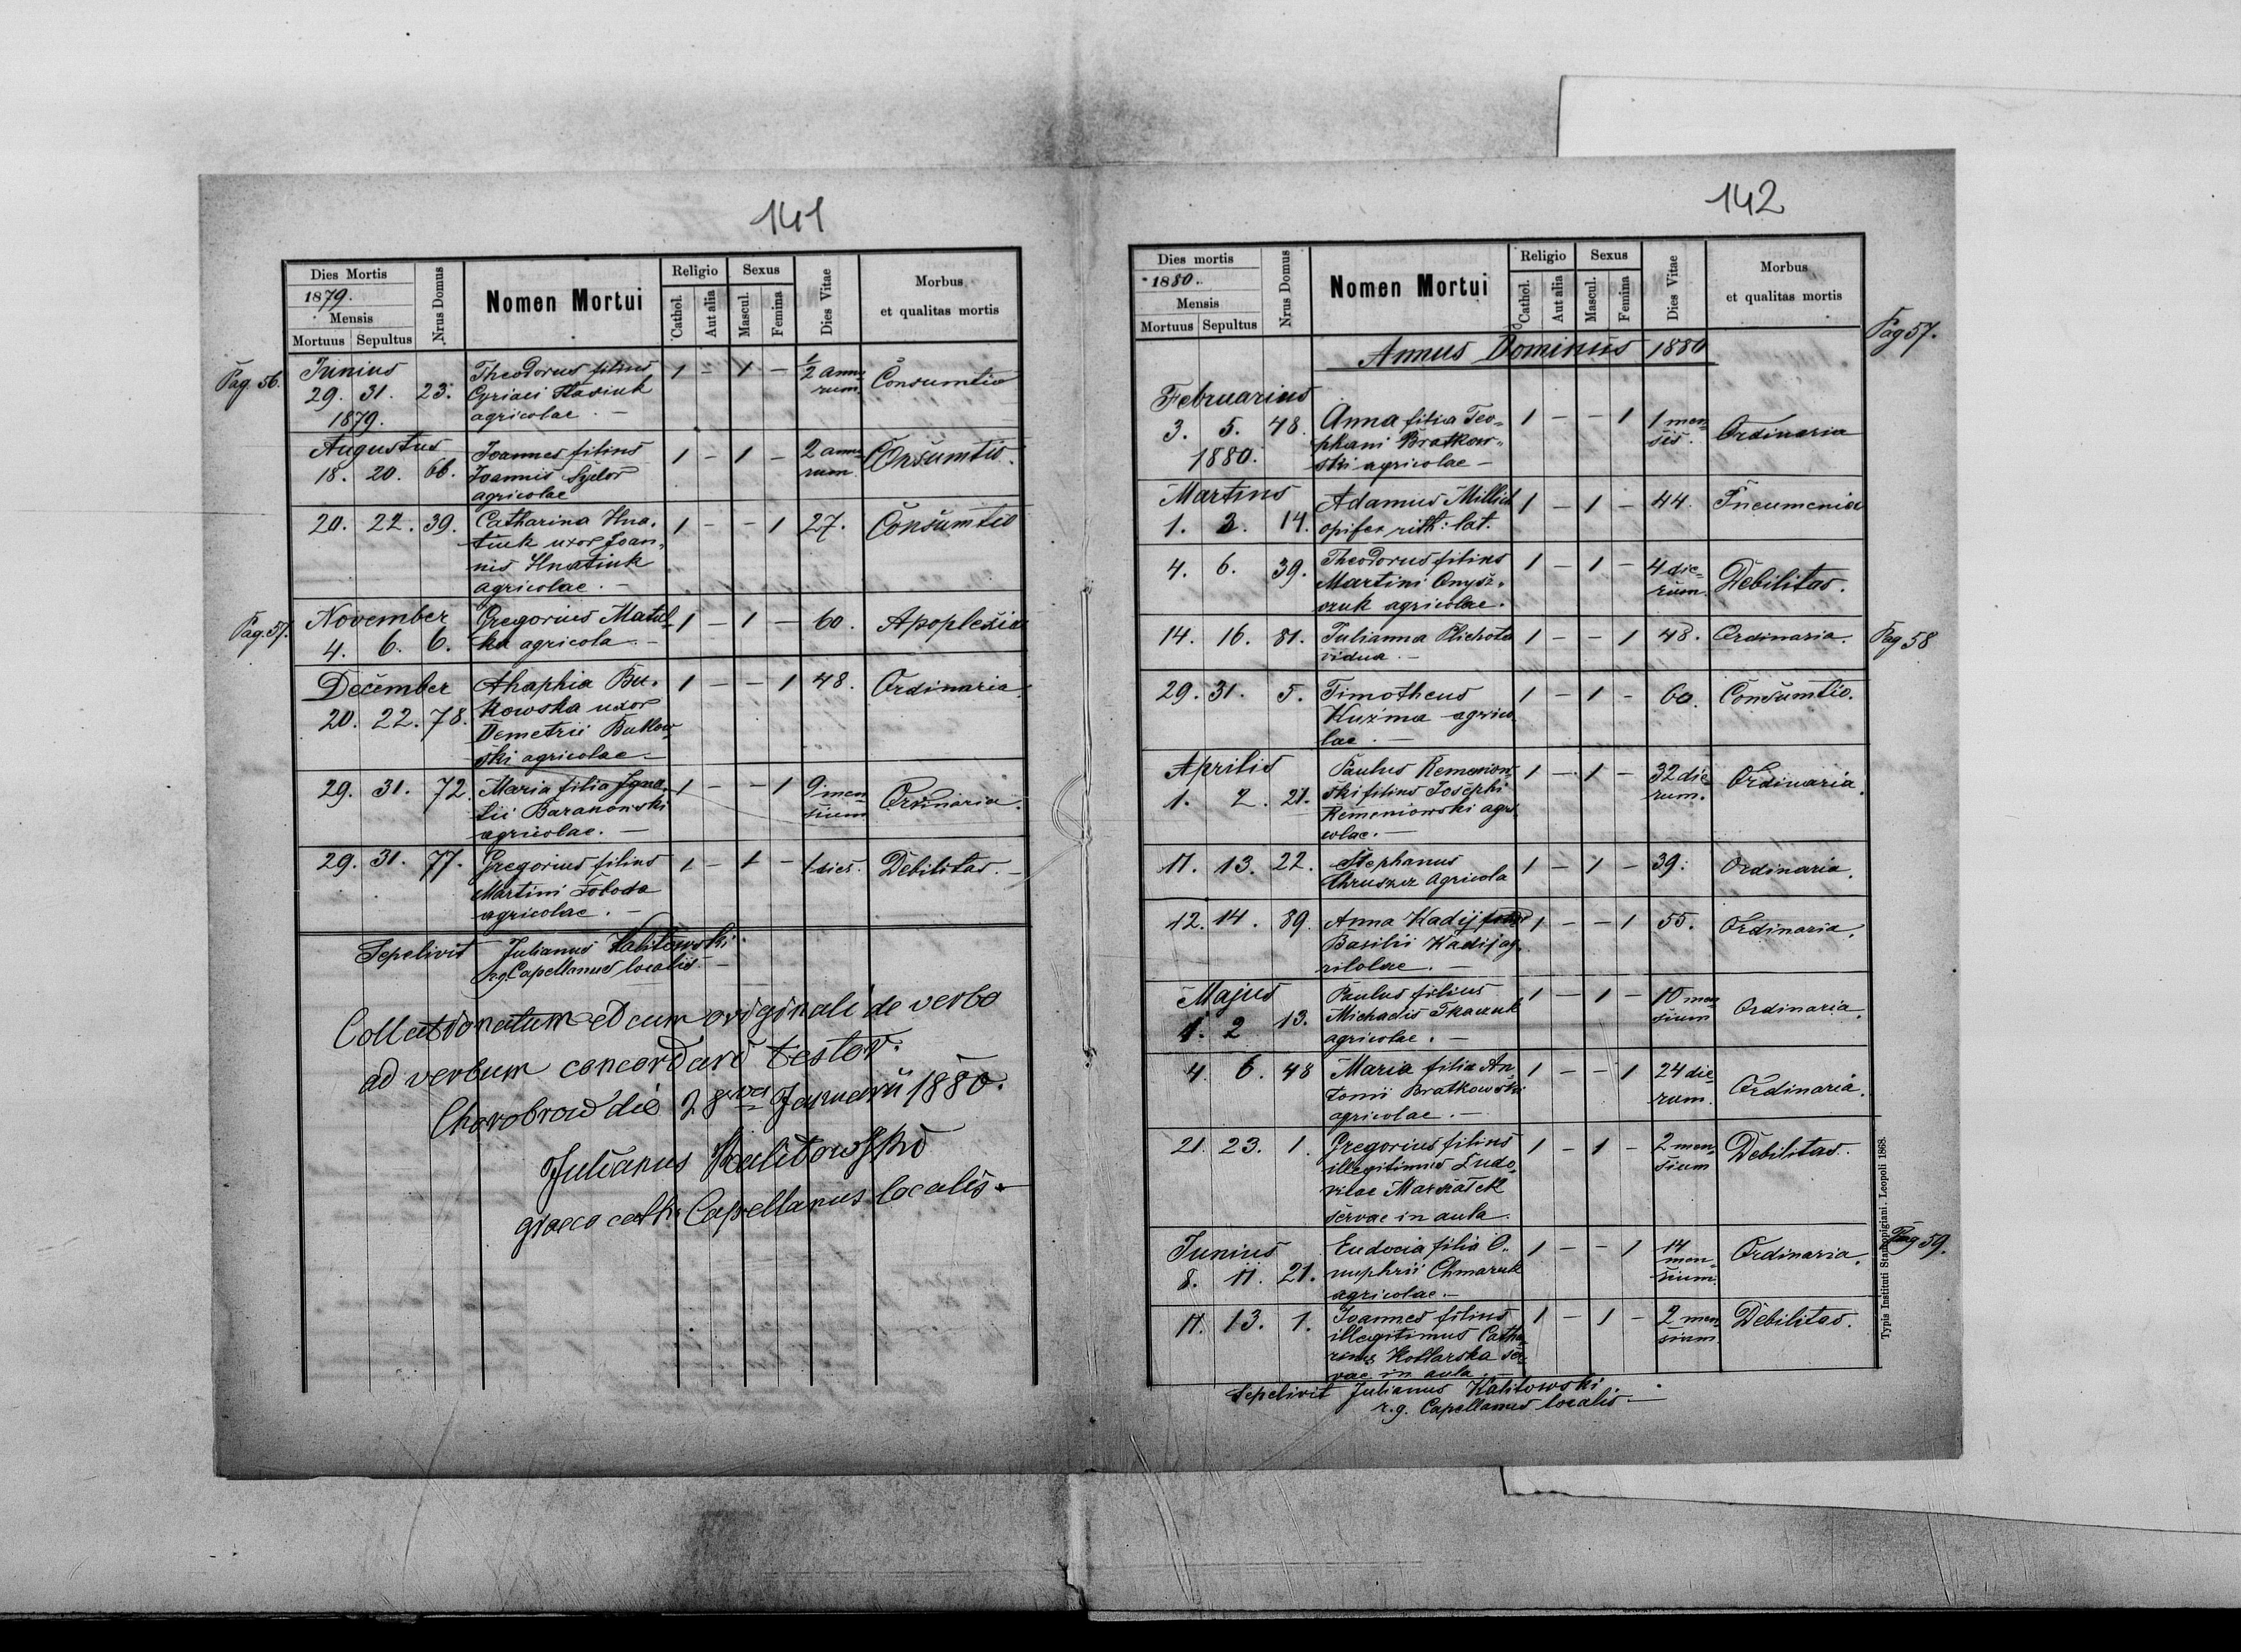 141
Dies Mortis
1879.
Mensis
Mortuus Sepultus
Nrus Domus
Nomen Mortui
Religio
Cathol.
Aut alia
Sexus
Mascul.
Femina
Dies Vitae
Morbus
et qualitas mortis
Pag. 56.
Junius
29. 31. 23. Theodorus filius 1 - 1 - 1/2 annorum Consumtio
1879. Cyriaci Stasiuk
agricolae. -
Augustus
18. 20. 66. Joannes filius 1 - 1 - 2 annorum Consumtio.
Joannis Sydor
agricolae
20. 22. 39. Catharina Hna- 1 - - 1 27. Consumtio
tiuk uxor Joan-
nis Hnatiuk
agricolae. -
Pag. 57.
November
4. 6. 6. Gregorius Matul- 1 - 1 - 60. Apoplexia
ka agricola -
December
20. 22. 78. Ahaphia Bu- 1 - - 1 48. Ordinaria.
kowska uxor
Demetrii Bukow-
ski agricolae -
29. 31. 72. Maria filia Igna- 1 - - 1 9 men-
sium Ordinaria.
tii Baranowski
agricolae. -
29. 31. 77. Gregorius filius 1 - 1 - 1 dies. Debilitas. -
Martini Łoboda
agricolae. -
Sepelivit Julianus Kalitowski
Capellanus localis. -
Collationatum et cum originali de verbo
ad verbum concordare testor.
Chorobrow die 28 Januarii 1880.
Julianus Kalitowski
graeco cath. Capellanus localis. -
142
Dies mortis
1880.
Mensis
Mortuus Sepultus
Nrus Domus
Nomen Mortui
Religio
Cathol.
Aut alia
Sexus
Mascul.
Femina
Dies Vitae
Morbus
et qualitas mortis
Pag 57.
Annus Dominus 1880
Februarius
3. 5. 48. Anna filia Teo- 1 - - 1 1 men-
sis. Ordinaria
1880. phani Bratkow-
ski agricolae -
Martius
1. 3. 14. Adamus Millich 1 - 1 - 44. Pneumenia
opifex rith: lat.
4. 6. 39. Theodorus filius 1 - 1 - 4 die-
rum. Debilitas.
Martini Onysz-
czuk agricolae.
14. 16. 81. Julianna Plichota 1 - - 1 48. Ordinaria.
vidua. -
Pag 58
29. 31. 5. Timotheus 1 - 1 - 60. Consumtio.
Kuźma agrico-
lae. -
Aprilis
1. 2. 21. Paulus Remeniow- 1 - 1 - 32 die-
rum. Ordinaria.
ski filius Josephi
Remeniowski agri-
colae. -
11. 13. 22. Stephanus 1 - 1 - 39. Ordinaria.
Agricola
12. 14. 89. Anna Kadij 1 - - 1 55. Ordinaria.
Basilii Kadij ag-
rilolae. -
Majus
1. 2 13. Paulus filius 1 - 1 - 10 men-
sium Ordinaria.
Michaelis Tkaczuk
agricolae. -
4. 6. 48 Maria filia An- 1 - - 1 24 die-
rum. Ordinaria.
tonii Bratkowski
agricolae. -
21. 23. 1. Gregorius filius 1 - 1 - 2 men-
sium Debilitas.
illegitimus Ludo-
vicae
servae in aula.
Junius
8. 11. 21. Eudocia filia O- 1 - - 1 14
men-
sium. Ordinaria.
nuphrii Chmaruk
agricolae. -
Pag 59.
11. 13. 1. Joannes filius 1 - 1 - 2 men-
sium. Debilitas.
illegitimus Catha-
rinae Kotlarska ser-
vae in aula. -
Sepelivit Julianus Kalitowski.
r. g. Capellanus localis -
Typis Instituti Stauropigiani. Leopoli 1868.